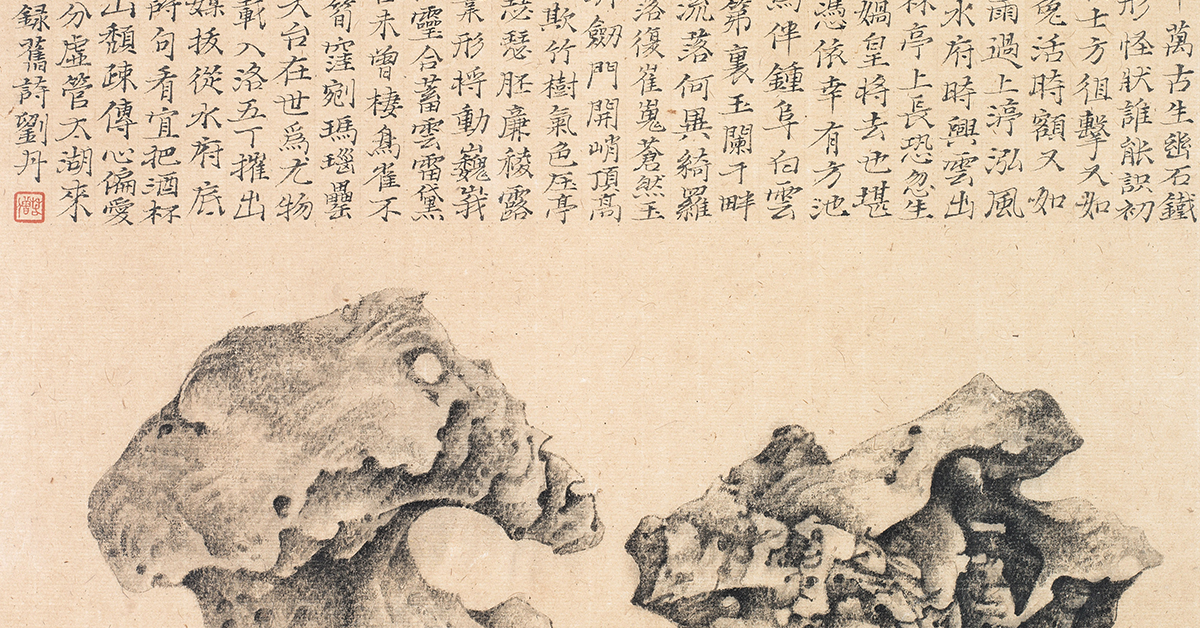 萬古生幽石鐵
形怪狀誰能識初
士方徂擊又如
兔活時額又如
雨過上渟泓風
水府時興雲出
林亭上長恐忽生
媧皇將去也堪
憑依幸有方池
為伴鍾阜白雲
第裏玉闌干畔
流落何異綺羅
洛復崔嵬蒼然玉
劒門開峭頂高
欺竹樹氣色压亭
瑟瑟胚廉稜露
形將動巍峩
靈合蓄雲雷黛
未曾棲鳥雀不
筍窪剜瑪瑙罍
天台在世為尤物
載入洛五丁推出
媒拔從水府底
詩句看宜把酒杯
山頹疎傳心偏愛
分虛管太湖來
録舊詩劉丹